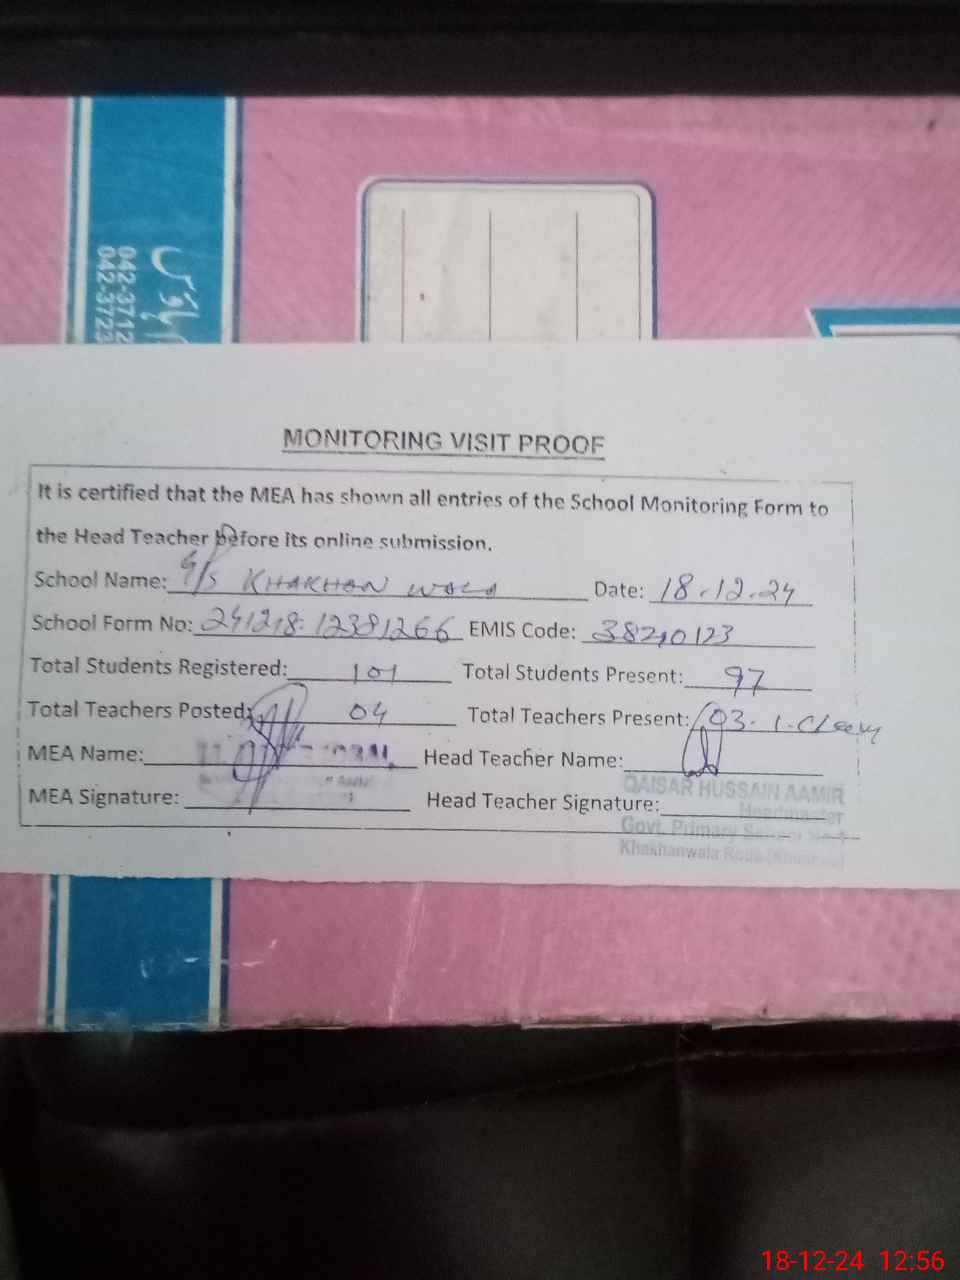 042-3712
042-3723
MONITORING VISIT PROOF
It is certified that the MEA has shown all entries of the School Monitoring Form to
the Head Teacher before its online submission.
School Name: P/S KHAKHAN WALA Date: 18.12.24
School Form No: 241218-12381266 EMIS Code: 38210123
Total Students Registered: 101 Total Students Present: 97
Total Teachers Posted: 04 Total Teachers Present: 03. 1.
MEA Name: Head Teacher Name:
QAISAR HUSSAIN AAMIR
MEA Signature: Head Teacher Signature:
Headmaster
Govt. Primary School No.
Khakhanwala Road
18-12-24 12:56